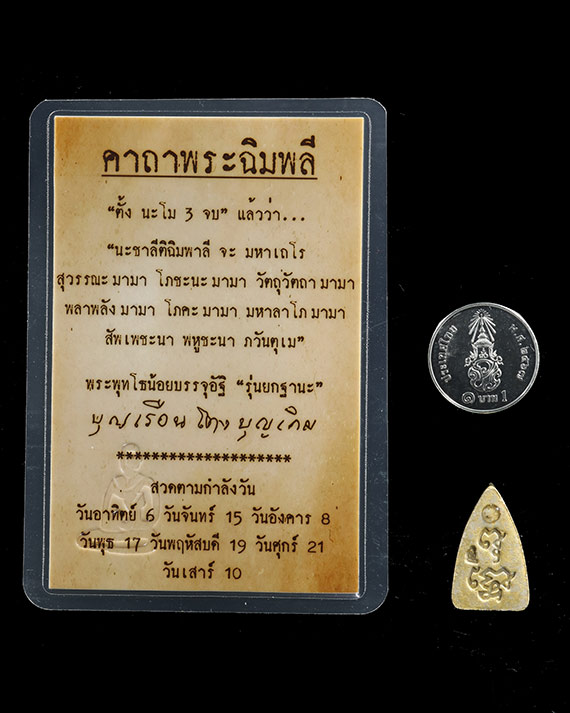 คาถาพระฉิมพลี
“ตั้ง นะโม 3 จบ” แล้วว่า...
“นะชาลีติฉิมพาลี จะ มหาเถโร
สุวรรณะ มามา โภชะนะ มามา วัตถุวัตถา มามา
พลาพลัง มามา โภคะ มามา มหาลาโภ มามา
สัพเพชะนา พหูชะนา ภวันตุเม”
พระพุทโธน้อยบรรจุอัฐิ “รุ่นยกฐานะ”
บุญเรือน โตงบุญเติม
********************
สวดตามกำลังวัน
วันอาทิตย์ 6 วันจันทร์ 15 วันอังคาร 8
วันพุธ 17 วันพฤหัสบดี 19 วันศุกร์ 21
วันเสาร์ 10
ประเทศไทย
๑ บาท 1